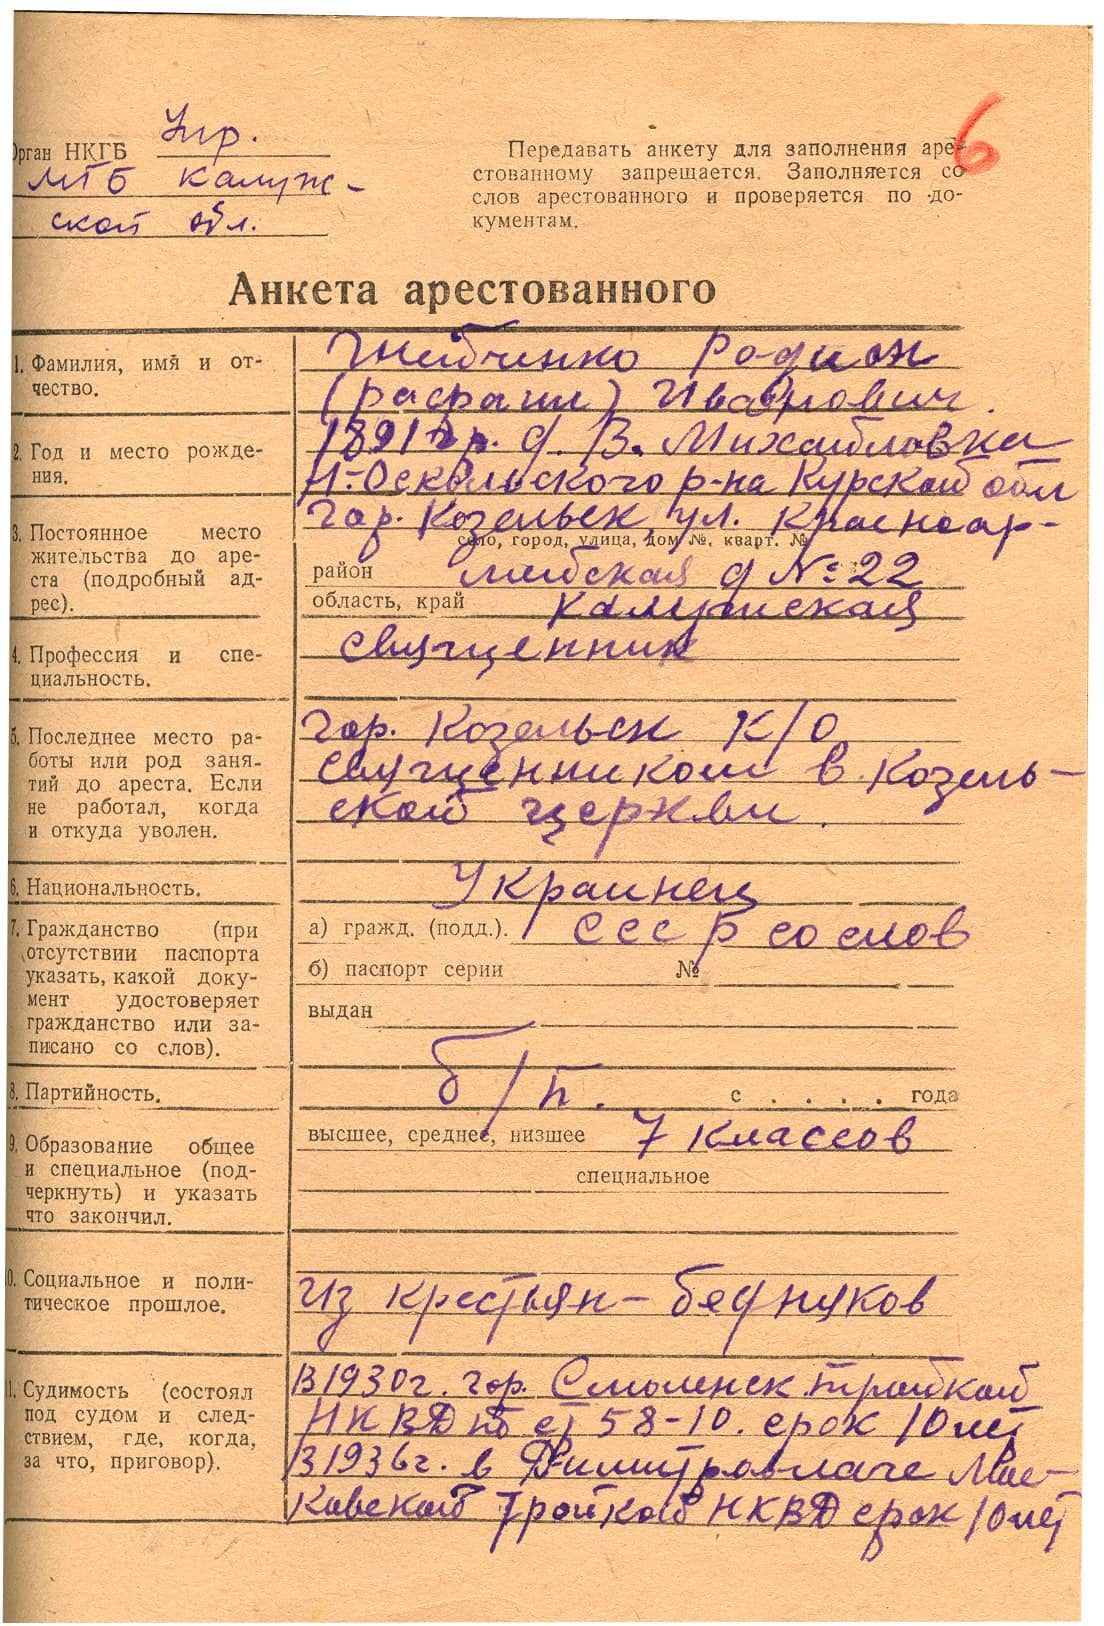 6
Орган НКГБ Упр.
МГБ Калуж-
ской обл.
Передавать анкету для заполнения аре-
стованному запрещается. Заполняется со
слов арестованного и проверяется по до-
кументам.
Анкета арестованного
1. Фамилия, имя и от-
чество.
Шейченко Родион
(Рафаил) Иванович.
2. Год и место рожде-
ния.
1891 г.р. д. В. Михайловка
Н-Оскольского р-на Курской обл
3. Постоянное место
жительства до аре-
ста (подробный ад-
рес).
гор. Козельск, ул. Красноар-
село, город, улица, дом №, кварт. №
район мейская д № 22
область, край Калужская
4. Профессия и спе-
циальность.
священник
5. Последнее место ра-
боты или род заня-
тий до ареста. Если
не работал, когда
и откуда уволен.
гор. Козельск К/О
священником в Козель-
ской церкви.
6. Национальность.
Украинец
7. Гражданство (при
отсутствии паспорта
указать, какой доку-
мент удостоверяет
гражданство или за-
писано со слов).
а) гражд. (подд.). СССР со слов
б) паспорт серии №
выдан
8. Партийность.
б/п. с . . . . года
9. Образование общее
и специальное (под-
черкнуть) и указать
что закончил.
высшее, среднее, низшее 7 классов
специальное
0. Социальное и поли-
тическое прошлое.
Из крестьян-бедняков
1. Судимость (состоял
под судом и след-
ствием, где, когда,
за что, приговор).
В 1930 г. гор. Смоленск тройкой
НКВД по ст 58-10. срок 10 лет
В 1936 г. в Димитровлаге Мос-
ковской тройкой НКВД срок 10 лет